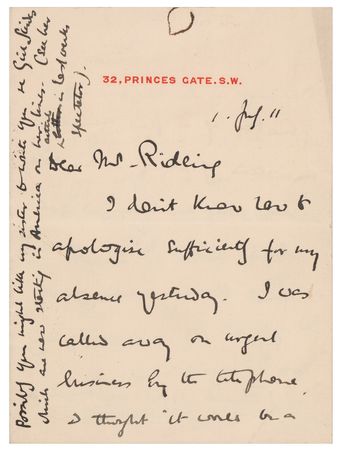 32, PRINCES GATE. S.W.
1. July. 11
Dear Mr. Rideing
I don't know how to
apologise sufficiently for my
absence yesterday. I was
called away on urgent
business by the telephone
I thought it would be a
Possibly you might like my sister to write you re Girl Guides
which are now starting in America on her lines. (See her
article in last week's
Spectator).